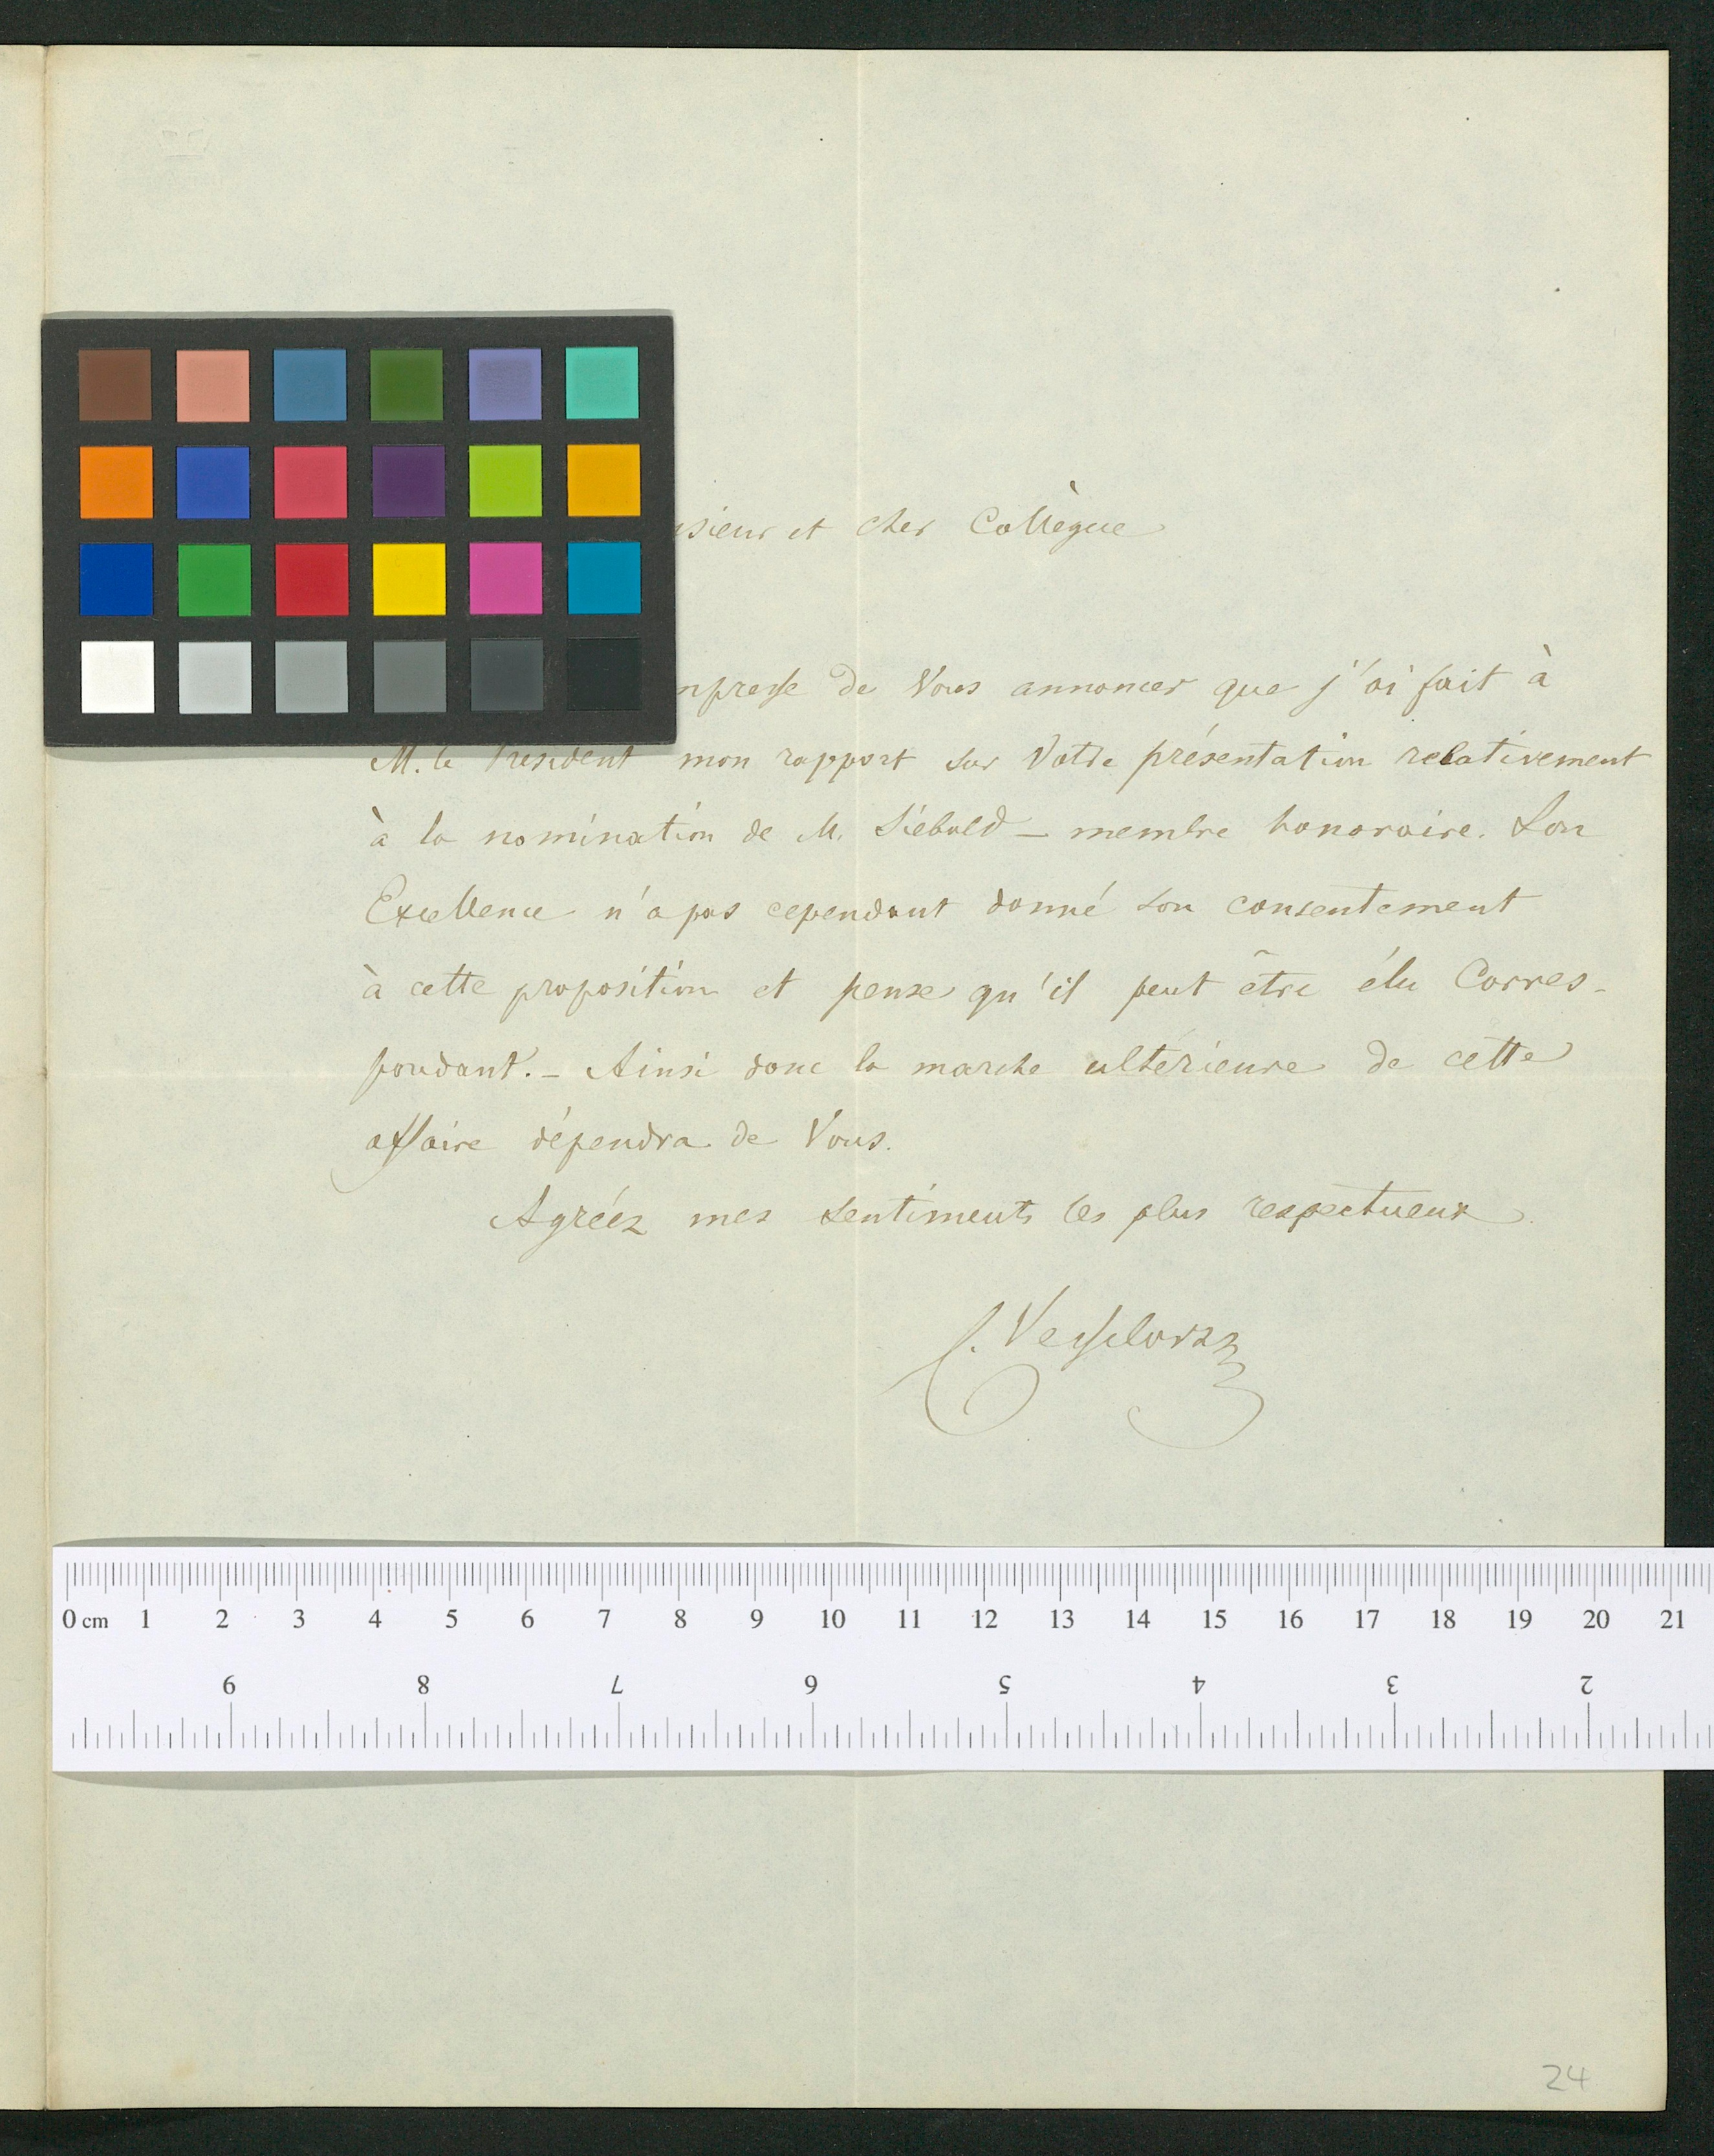 et cher Collègue
de Vous annoncer que j'ai fait à
M. le President mon rapport sur Votre présentation relativement
à la nomination de M. Siebold — membre honoraire. Son
Excellence n'a pas cependant donné son consentement
à cette proposition et pense qu'il peut être élu Corres-
pondant. — Ainsi donc la marche ultérieure de cette
affaire dépendra de Vous.
Agréez mes sentiments les plus respectueux.
0 cm 1 2 3 4 5 6 7 8 9 10 11 12 13 14 15 16 17 18 19 20 21
9 8 7 6 5 4 3 2
24